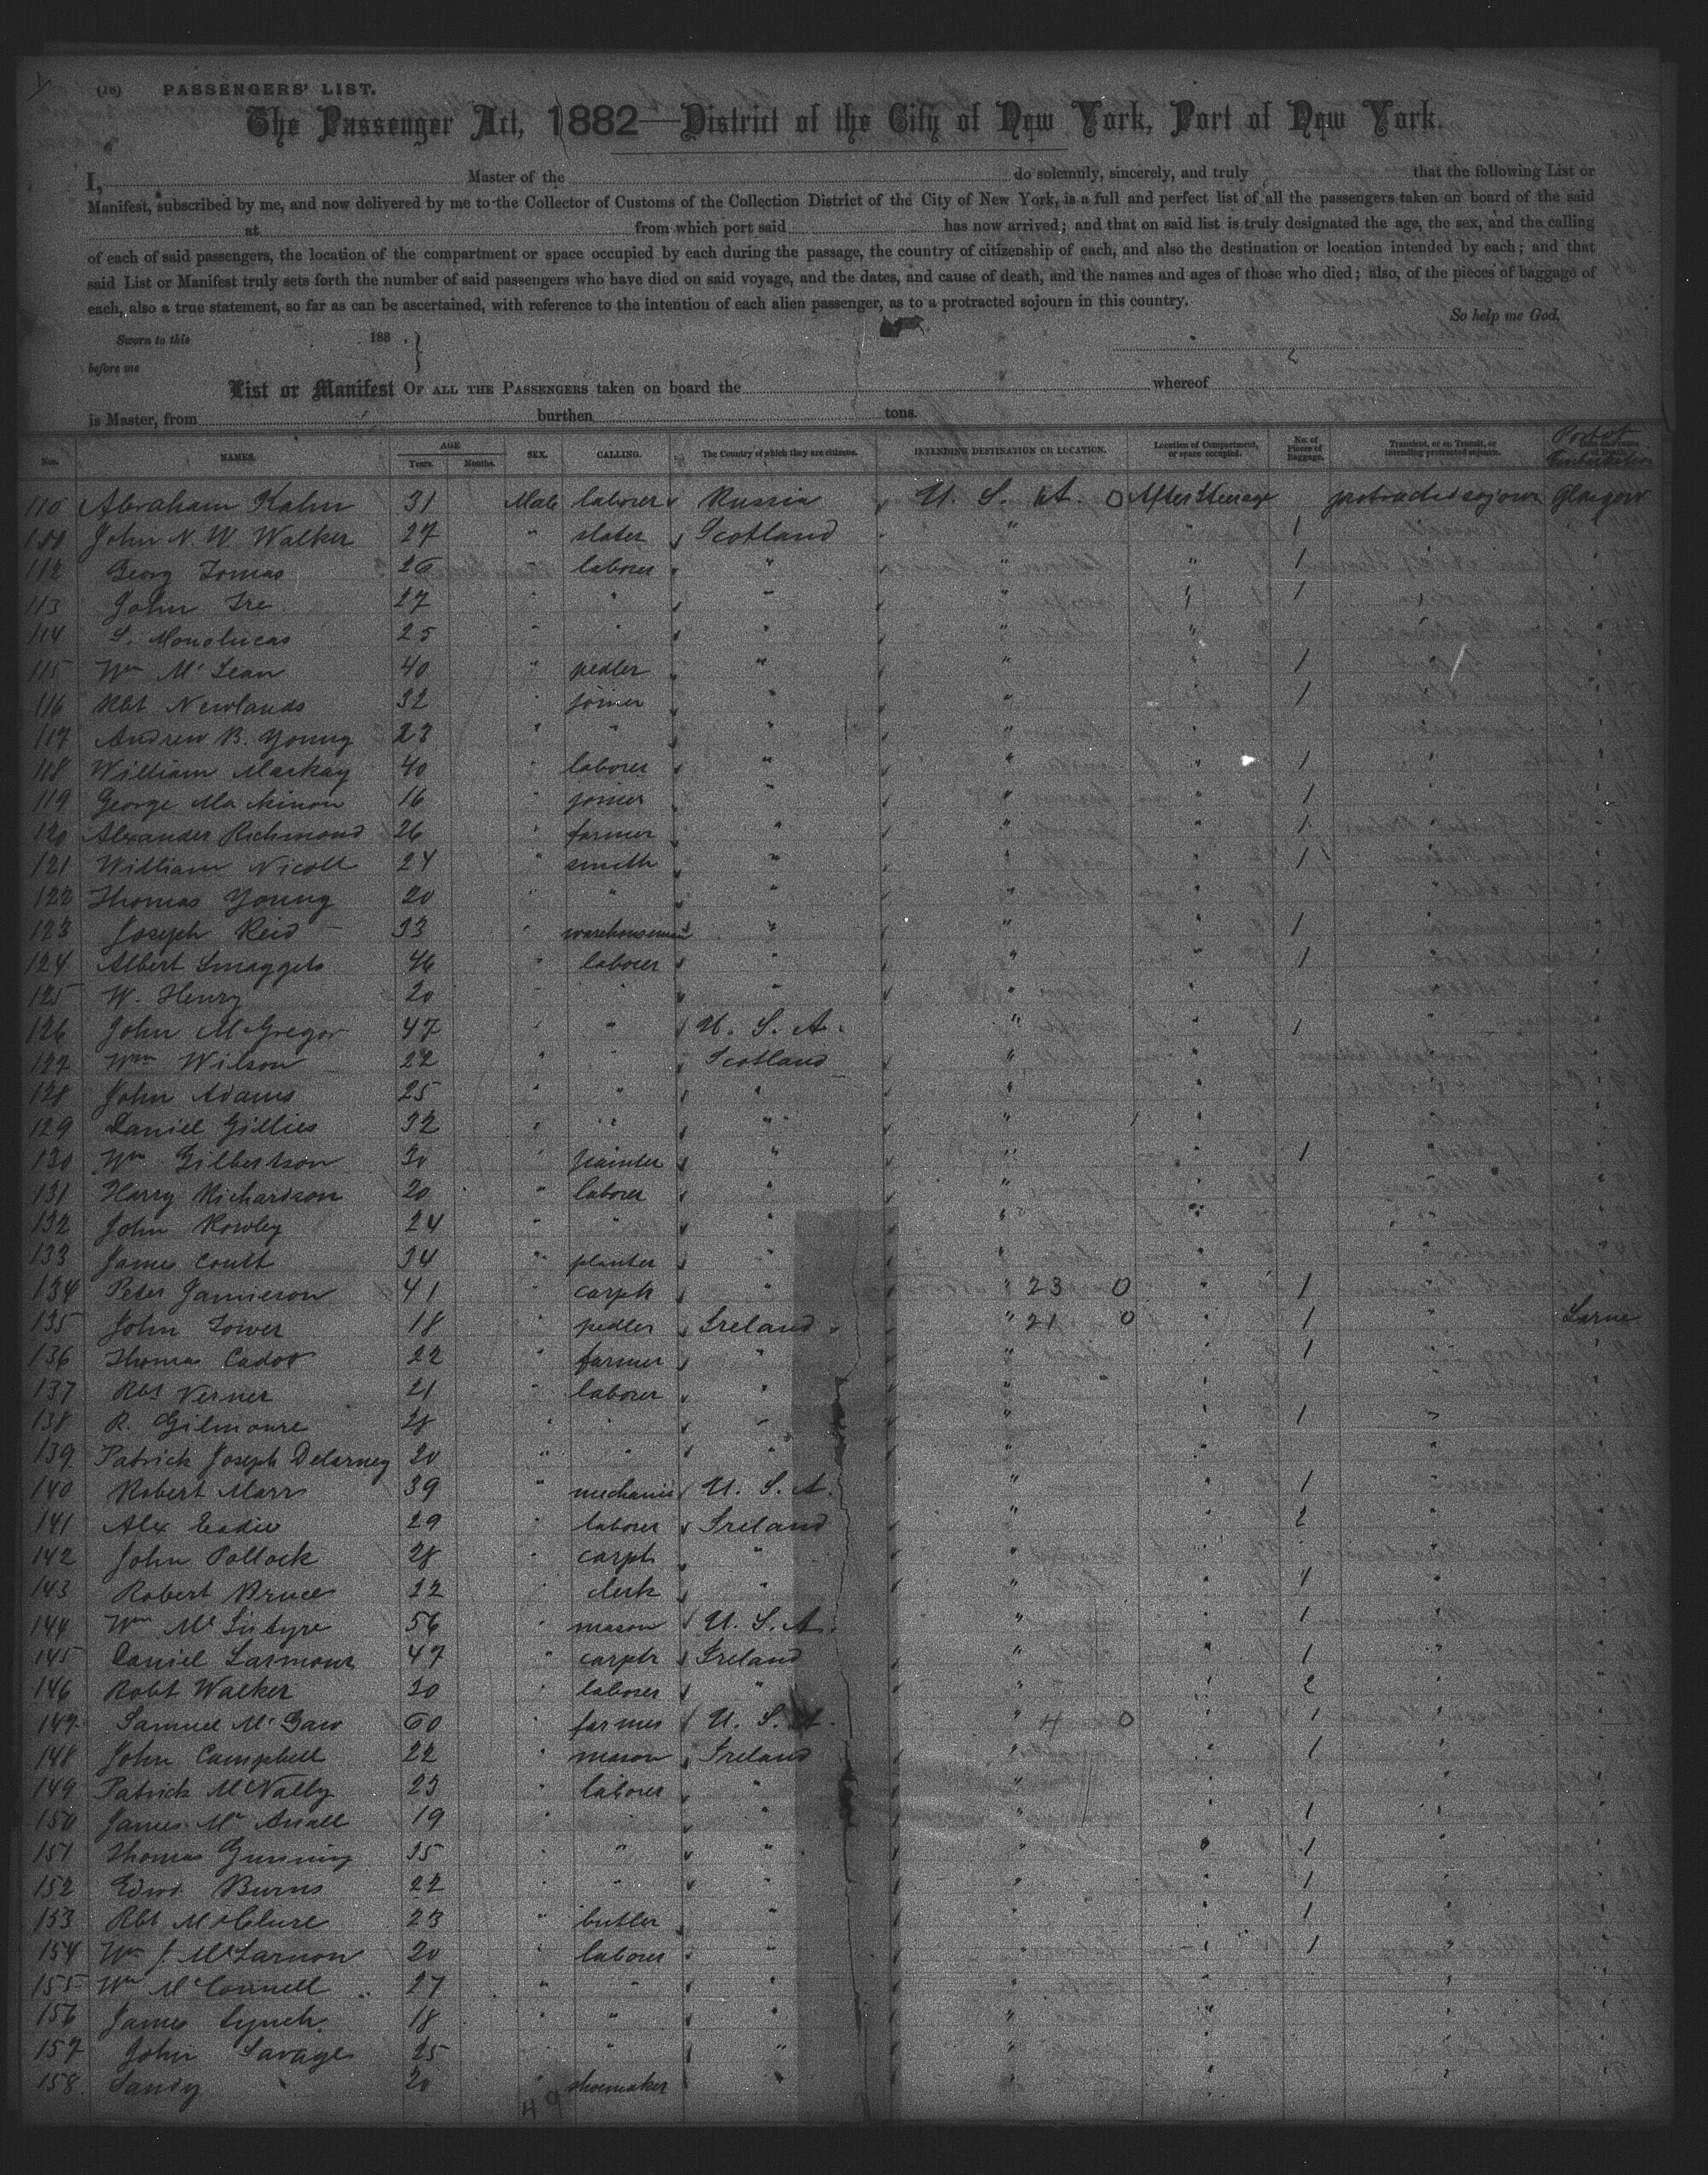 (18) PASSENGERS' LIST.
The Passenger Act, 1882—District of the City of New York, Port of New York.
I, Master of the do solemnly, sincerely, and truly that the following List or
Manifest, subscribed by me, and now delivered by me to the Collector of Customs of the Collection District of the City of New York, is a full and perfect list of all the passengers taken on board of the said
at from which port said has now arrived; and that on said list is truly designated the age, the sex, and the calling
of each of said passengers, the location of the compartment or space occupied by each during the passage, the country of citizenship of each, and also the destination or location intended by each; and that
said List or Manifest truly sets forth the number of said passengers who have died on said voyage, and the dates, and cause of death, and the names and ages of those who died; also, of the pieces of baggage of
each, also a true statement, so far as can be ascertained, with reference to the intention of each alien passenger, as to a protracted sojourn in this country.
So help me God.
Sworn to this 188 }
before me
List or Manifest OF ALL THE PASSENGERS taken on board the whereof
is Master, from burthen tons.
Nos. NAMES. AGE Years. Months. SEX. CALLING. The Country of which they are citizens. INTENDING DESTINATION OR LOCATION. Location of Compartment, or space occupied. No. of Pieces of Baggage. Transient, or on Transit, or intending protracted sojourn. Port of Embarkation
110 Abraham Kahn 31 Male laborer Russia U. S. A. 0 After Steerage protracted sojourn Glasgow
111 John N. W. Walker 27 " slater Scotland " " 1
112 Georg Tomas 26 " laborer " " " 1
113 John Tre 27 " " " " " 1
114 S. Monolucas 25 " " " " "
115 Wm McLean 40 " pedler " " " 1
116 Rbt Newlands 32 " joiner " " 1
117 Andrew B. Young 23 " " " "
118 William Mackay 40 " laborer " " " 1
119 George Mackinon 16 " joiner " " " 1
120 Alexander Richmond 26 " farmer " " " 1
121 William Nicoll 24 " smith " " " 1
122 Thomas Young 20 " " " " "
123 Joseph Reid 33 " warehouseman " " " 1
124 Albert Smaggets 46 " laborer " " " 1
125 W. Henry 20 " " " " "
126 John McGregor 47 " " U. S. A. " " 1
127 Wm Wilson 22 " " Scotland " "
128 John Adams 25 " " " " "
129 Daniel Gillies 32 " " " " "
130 Wm Gilbertson 30 " painter " " " 1
131 Harry Richardson 20 " laborer " " "
132 John Rowley 24 " " " " "
133 James Coutt 34 " planter " " "
134 Peter Jamieson 41 " carptr " " 23 0 " 1
135 John Tower 18 " pedler Ireland " 21 0 " 1 " Larne
136 Thomas Cadoo 22 " farmer " " " 1
137 Rbt Verner 21 " laborer " " "
138 R. Gilmoure 28 " " " " " 1
139 Patrick Joseph Delarney 20 " " " " "
140 Robert Marr 39 " mechanic U. S. A. " " 1
141 Alex Eadie 29 " laborer Ireland " " 2
142 John Pollock 28 " carptr " " "
143 Robert Bruce 22 " clerk " " " 1
144 Wm McIntyre 56 " mason U. S. A. " " 1
145 Daniel Larmour 47 " carptr Ireland " " 1
146 Robt Walker 30 " laborer " " " 2
147 Samuel McGaw 60 " farmer U. S. A. " 4 0 " 1
148 John Campbell 22 " mason Ireland " " 1
149 Patrick McNally 23 " laborer " " "
150 James McArdll 19 " " " " " 1
151 Thomas Gunning 35 " " " " " 1
152 Edwd. Burns 22 " " " " " 1
153 Rbt McClure 23 " butler " " " 1
154 Wm J. McLarnon 20 " laborer " " " 1
155 Wm McConnell 27 " " " " "
156 James Lynch 18 " " " " "
157 John Savage 25 " " " " "
158 Sandy 20 " shoemaker " " "
49